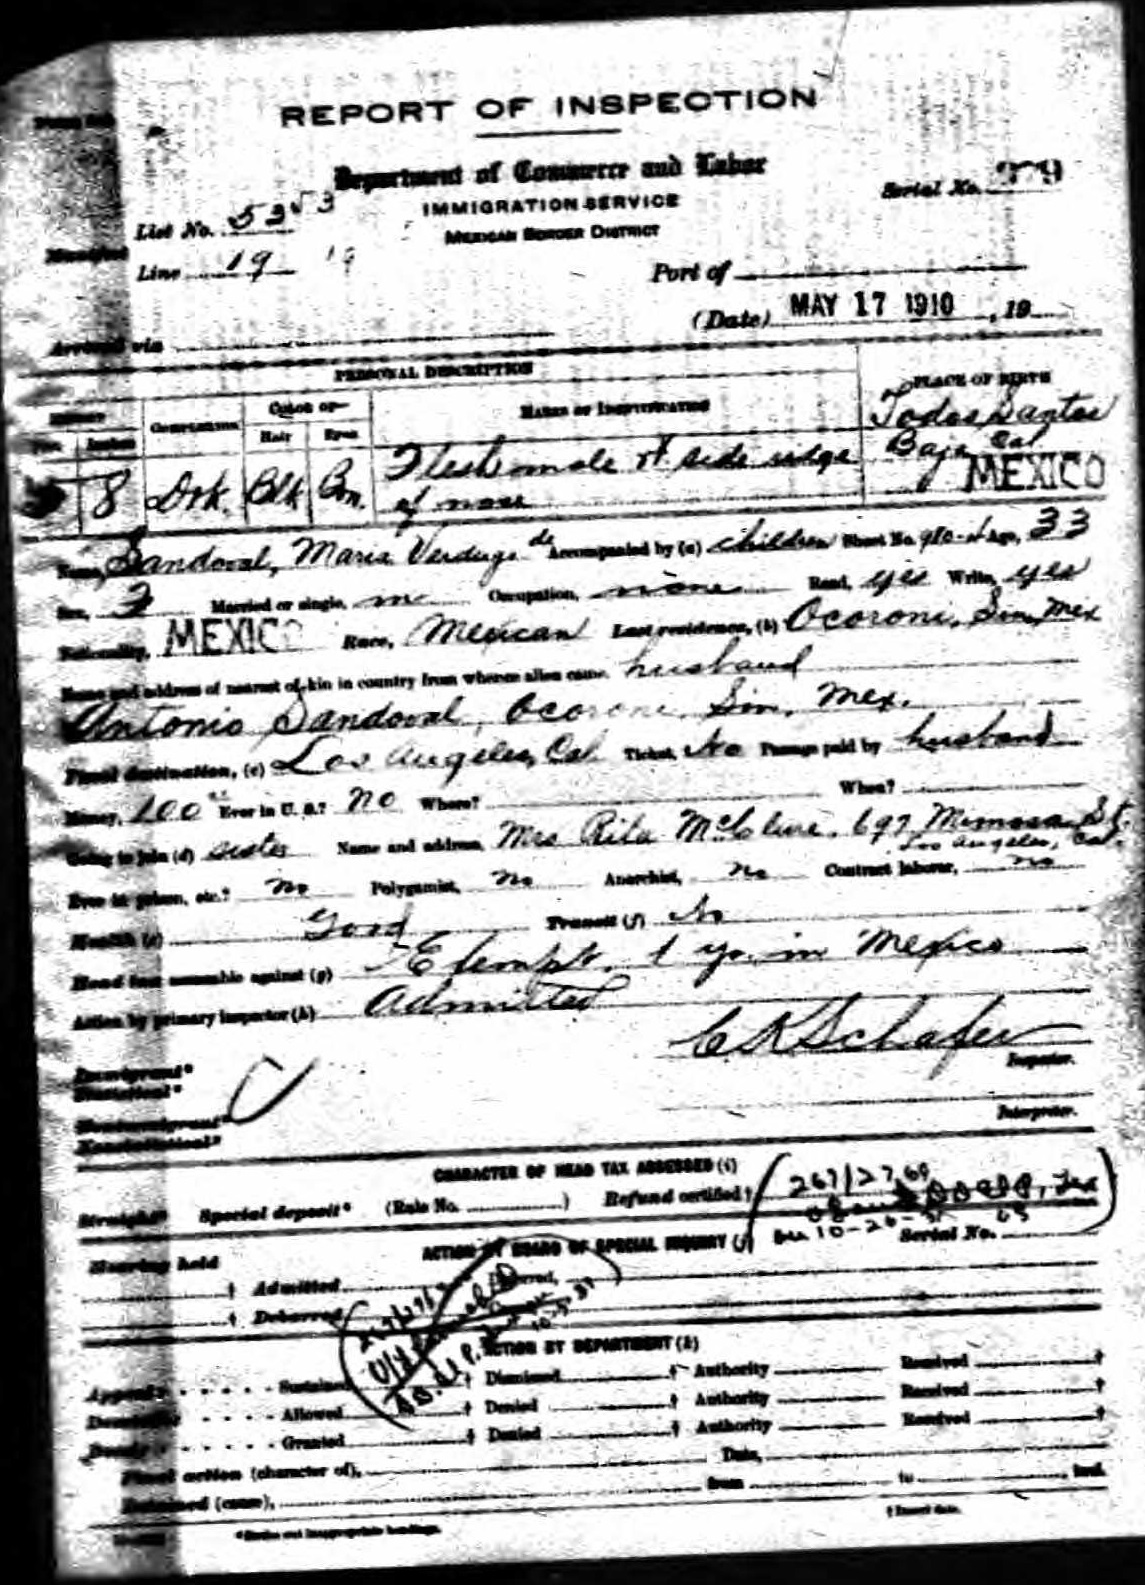 REPORT OF INSPECTION
Department of Commerce and Labor
IMMIGRATION SERVICE
MEXICAN BORDER DISTRICT
Serial No.
List No. 5253
Manifest
Line 19 19
Port of
(Date) MAY 17 1910, 19
Arrived via
PERSONAL DESCRIPTION
PLACE OF BIRTH
COLOR OF—
MARKS OF IDENTIFICATION
Inches COMPLEXION Hair Eyes
Todos Santos
Baja Cal
MEXICO
5 8 Drk. Blk Bn. Flesh mole rt side ridge
of nose
Name, Sandoval, Maria Verdugo de Accompanied by (a) children Sheet No. Age, 33
Sex, Married or single, m Occupation, none Read, yes Write, yes
Nationality, MEXICO Race, Mexican Last residence, (b) Ocoroni, Sin, Mex
Name and address of nearest of kin in country from whence alien came, husband
Antonio Sandoval, Ocoroni, Sin, Mex.
Final destination, (c) Los Angeles, Cal. Ticket, No Passage paid by husband
Money, 100 Ever in U. S.? no Where? When?
Going to join (d) sister Name and address, Mrs Rita McClure, 697 Mimosa St.
Los Angeles, Cal.
Ever in prison, etc.? no Polygamist, no Anarchist, no Contract laborer, no
Health (e) Good Transit (f) No
Head tax assessable against (g) Exempt. 1 yr. in Mexico
Action by primary inspector (h) Admitted
C R Schafer
Inspector.
Immigrant*
Statistical*
Nonimmigrant*
Nonstatistical*
Interpreter.
CHARACTER OF HEAD TAX ASSESSED (i)
Straight* Special deposit* (Rule No. ) Refund certified †
Serial No.
Hearing held
ACTION BY BOARD OF SPECIAL INQUIRY (j)
† Admitted
† Debarred
ACTION BY DEPARTMENT (k)
Appeal Sustained † Dismissed † Authority Received †
Allowed † Denied † Authority Received †
Granted † Denied † Authority Received †
Final action (character of), Date,
Detained (cause), from to , incl.
*Strike out inappropriate headings.
† Insert date.